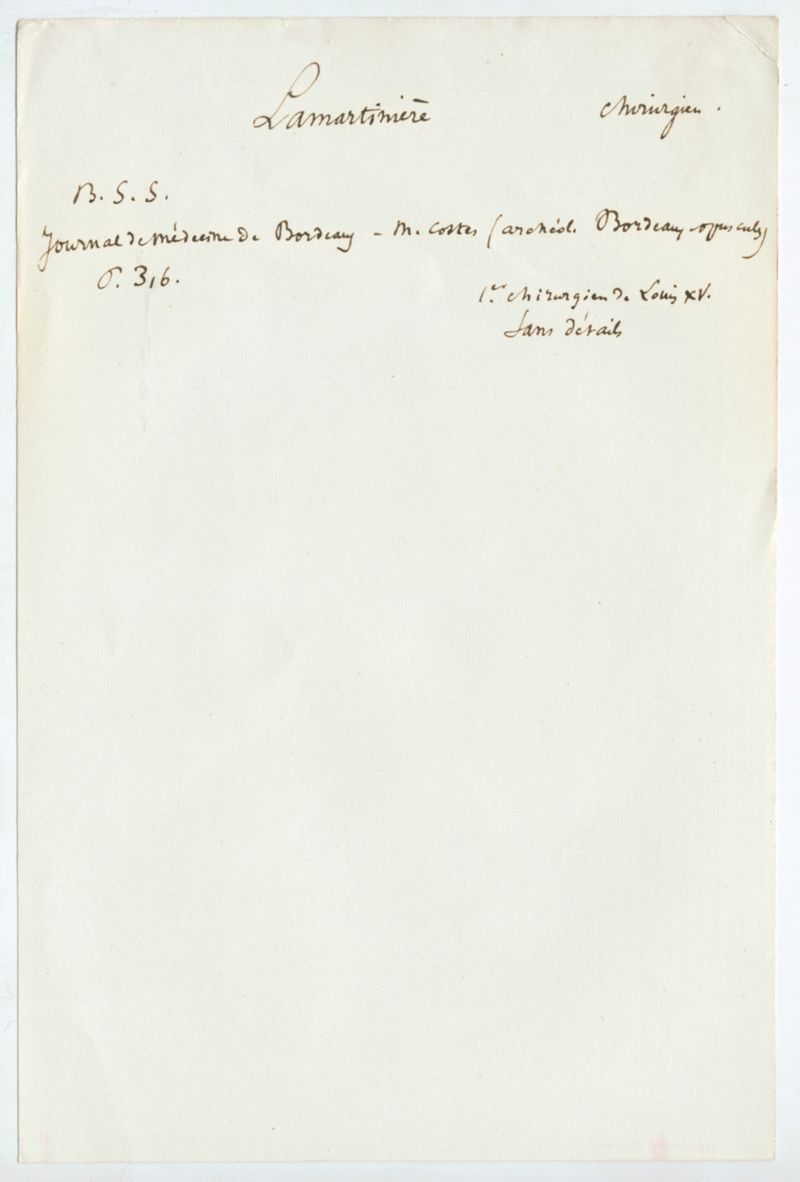 Lamartinière chirurgien.
B. S. S.
Journal de médecine de Bordeaux - M. Costes (archéol. Bordeaux, opuscules)
P. 316.
1.er chirurgien de Louis XV.
Sans détails